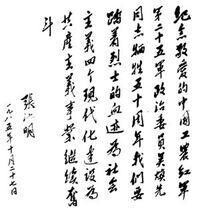 纪念敬爱的中国工农红军
第二十五军政治委员吴焕先
同志牺牲五十周年我们要
踏着烈士的血迹为社会
主義四个现代化建设为
共產主義事業继续奮
斗
張
明
一九八五年十月二十七日